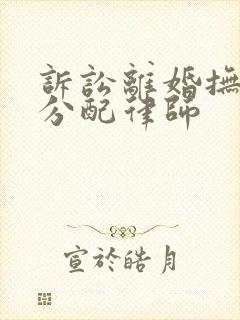 訴訟離婚撫
分配律師
宣於皓月